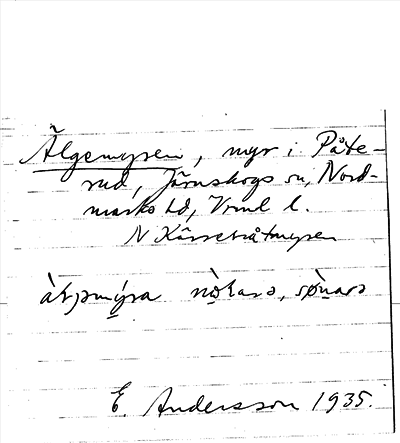 Älgemyren, myr i Påte-
rud, Järnskogs sn, Nord-
marks hd, Vrml l.
N Kärretråtmyren
nòɫarə, sø̀narə
E. Andersson 1935.